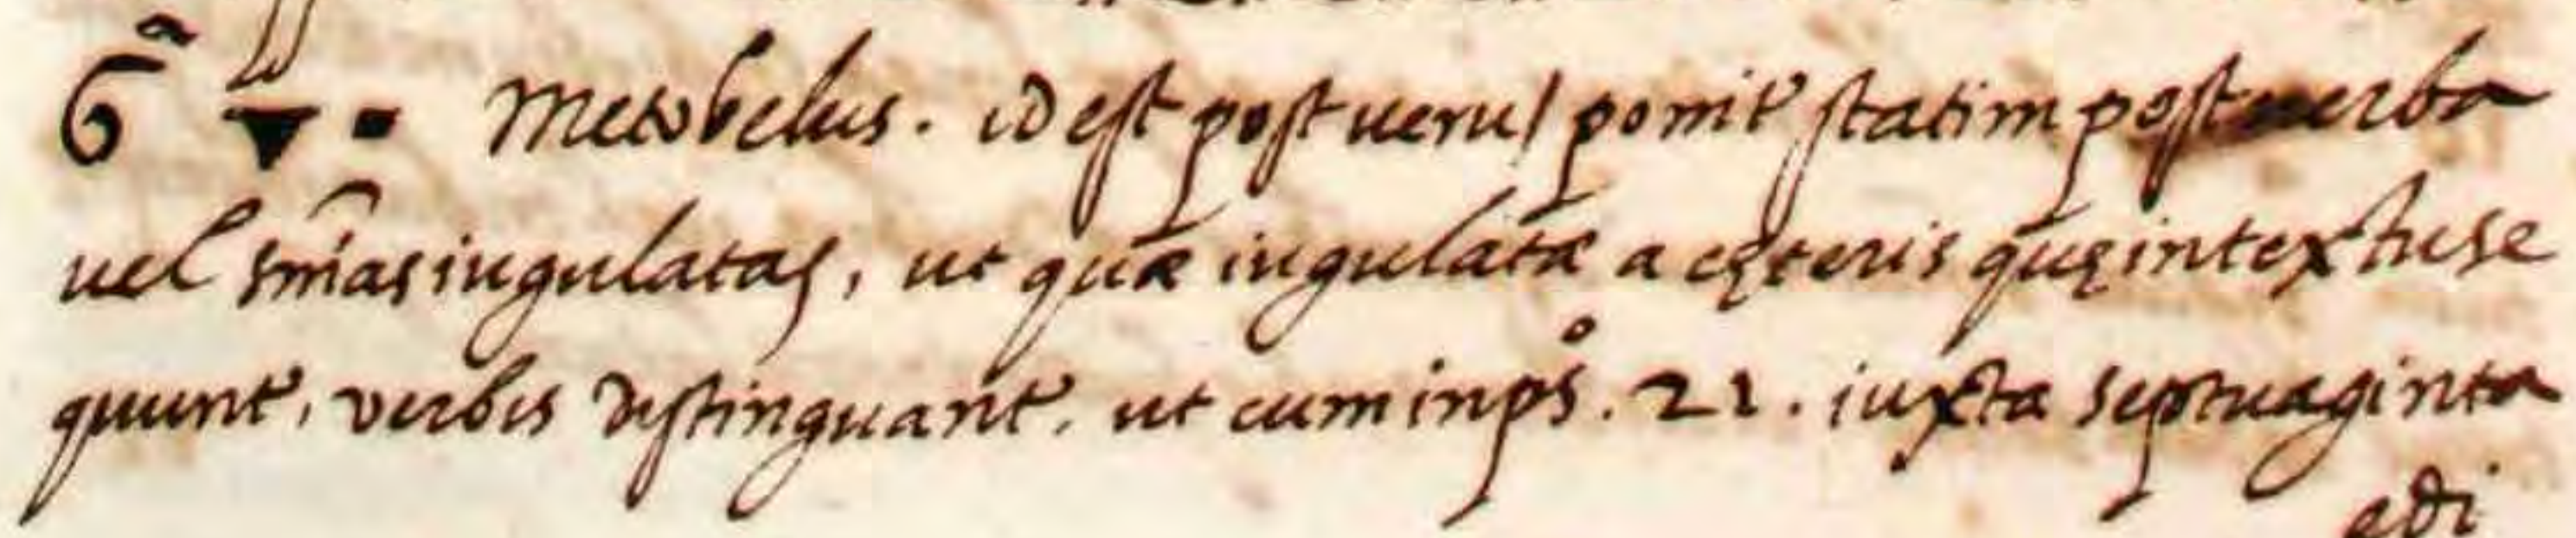 6ᵃ ▼ ▪ Metobelus. id est post ueru/ ponit᷑ statim post uerba
uel sm̃as iugulatas, ut quæ iugulatæ a cęteris quę in textu se
quunt᷑, verbis distinguant᷑, ut cum in psº. 21. iuxta septuaginta
edi